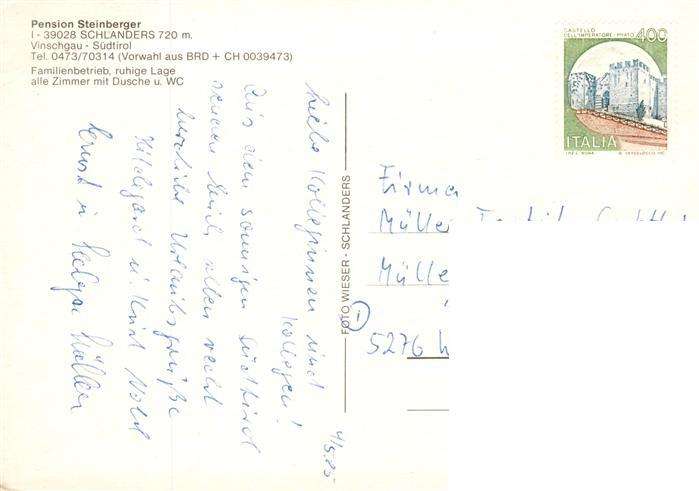 Pension Steinberger
I - 39028 SCHLANDERS 720 m.
Vinschgau - Südtirol
Tel. 0473/70314 (Vorwahl aus BRD + CH 0039473)
Familienbetrieb, ruhige Lage
alle Zimmer mit Dusche u. WC
CASTELLO
DELL'IMPERATORE · PRATO
400
ITALIA
4/5.85
Liebe Kolleginnen und
Kollegen!
Aus dem sonnigen Südtirol
senden Euch allen recht
herzliche Urlaubsgrüße
Hildegard u. Kurt
Ernst u. Helga Müller
FOTO WIESER - SCHLANDERS
Firma
Mülle
Mülle
5276